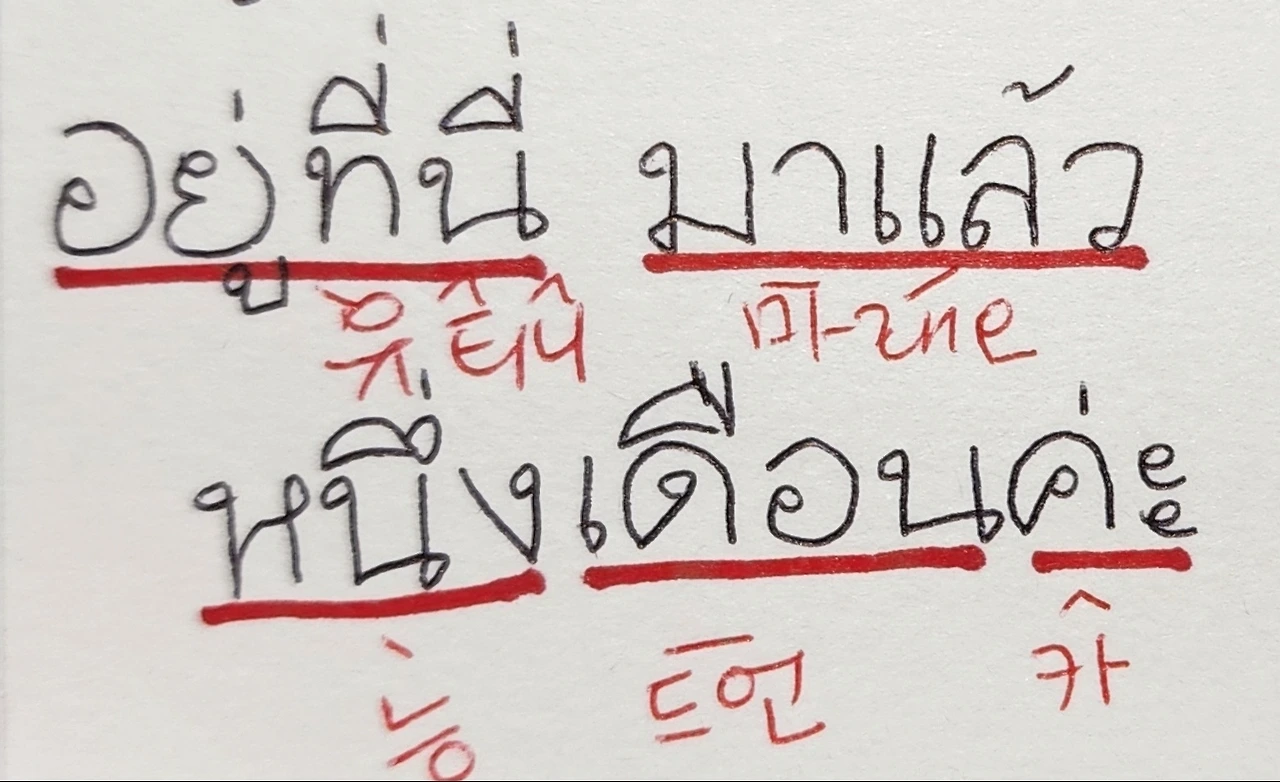 อยู่ที่นี่ มาแล้ว
유 티니 마-래우
หนึ่งเดือนค่ะ
능 드언 카